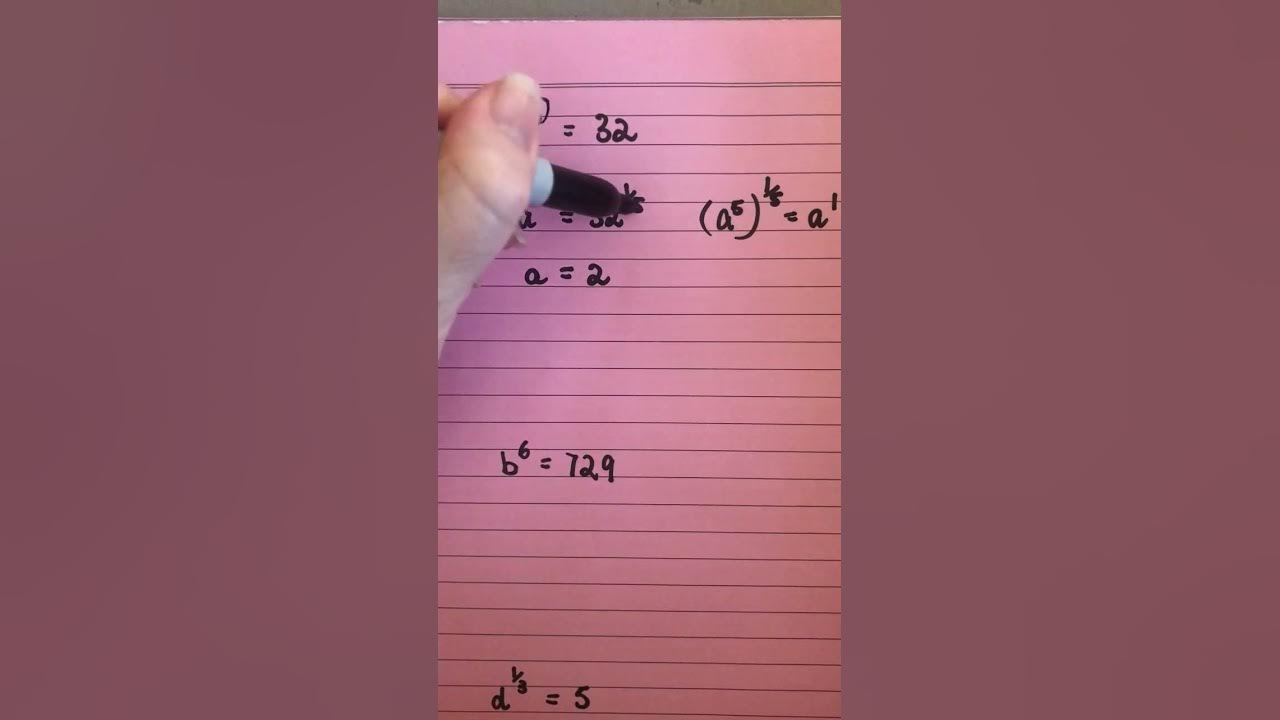 = 32
a = 32^(1/5) (a^5)^(1/5) = a^1
a = 2
b^6 = 729
d^(1/3) = 5